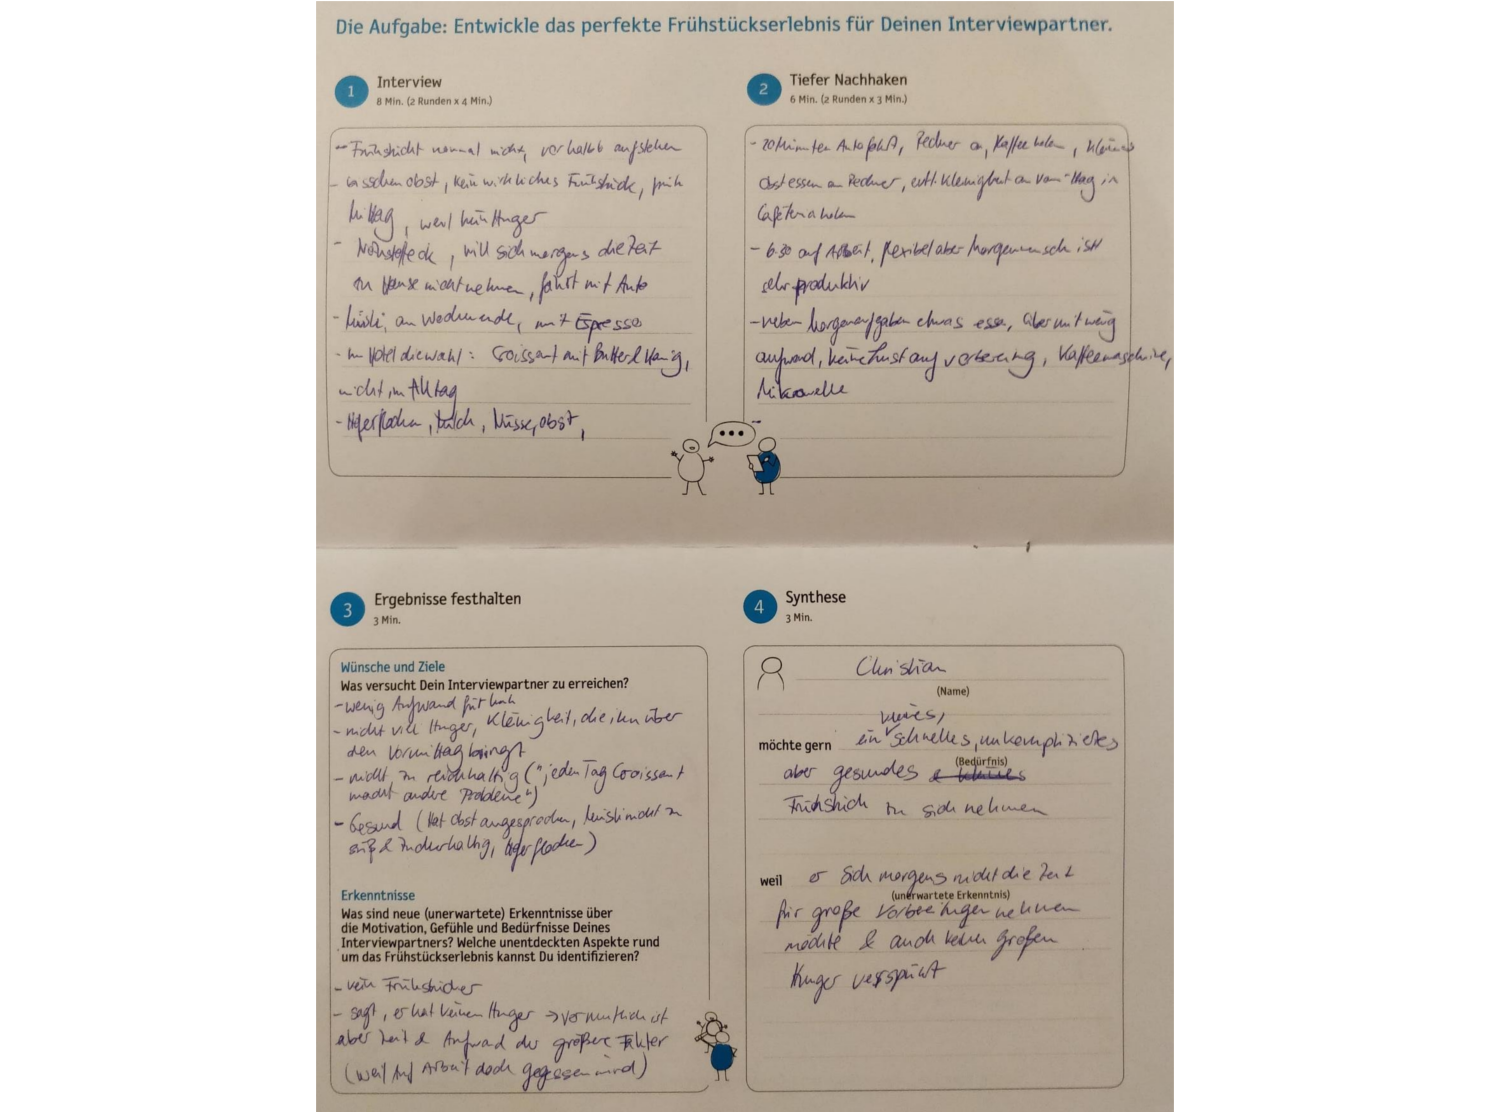 Die Aufgabe: Entwickle das perfekte Frühstückserlebnis für Deinen Interviewpartner.
1
Interview
8 Min. (2 Runden x 4 Min.)
- Frühstückt normal nicht, vor halb 6 aufstehen
- bisschen Obst, kein wirkliches Frühstück, früh
Mittag, weil kein Hunger
- will sich morgens die Zeit
zu Hause nicht nehmen, fährt mit Auto
- Müsli am Wochenende, mit Espresso
- im Hotel die Wahl: Croissant mit Butter & Honig,
nicht im Alltag
- Haferflocken, Milch, Nüsse, Obst,
2
Tiefer Nachhaken
6 Min. (2 Runden x 3 Min.)
- 20 Minuten Autofahrt, Rechner an, Kaffee holen, kleines
Obst essen am Rechner, evtl. Kleinigkeit am Vormittag in
Cafeteria holen
- 6:30 auf Arbeit, flexibel aber Morgenmensch ist
sehr produktiv
- neben Morgenaufgaben etwas essen, aber mit wenig
aufwand, keine Lust auf vorbereitung, Kaffeemaschine,
Mikrowelle
3
Ergebnisse festhalten
3 Min.
Wünsche und Ziele
Was versucht Dein Interviewpartner zu erreichen?
- wenig Aufwand früh
- nicht viel Hunger, Kleinigkeit, die ihn über
den Vormittag bringt
- nicht zu reichhaltig ("jeden Tag Croissant
macht andere Probleme")
- Gesund (Hat Obst angesprochen, Müsli nicht zu
süß & zuckerhaltig, Haferflocken)
Erkenntnisse
Was sind neue (unerwartete) Erkenntnisse über
die Motivation, Gefühle und Bedürfnisse Deines
Interviewpartners? Welche unentdeckten Aspekte rund
um das Frühstückserlebnis kannst Du identifizieren?
- kein Frühstücker
- sagt, er hat keinen Hunger → vermutlich ist
aber Zeit & Aufwand der größere Faktor
(weil auf Arbeit doch gegessen wird)
4
Synthese
3 Min.
Christian
(Name)
kleines,
möchte gern ein schnelles, unkompliziertes
(Bedürfnis)
aber gesundes
Frühstück zu sich nehmen
weil er sich morgens nicht die Zeit
(unerwartete Erkenntnis)
für große Vorbereitungen nehmen
möchte & auch keinen großen
Hunger verspürt